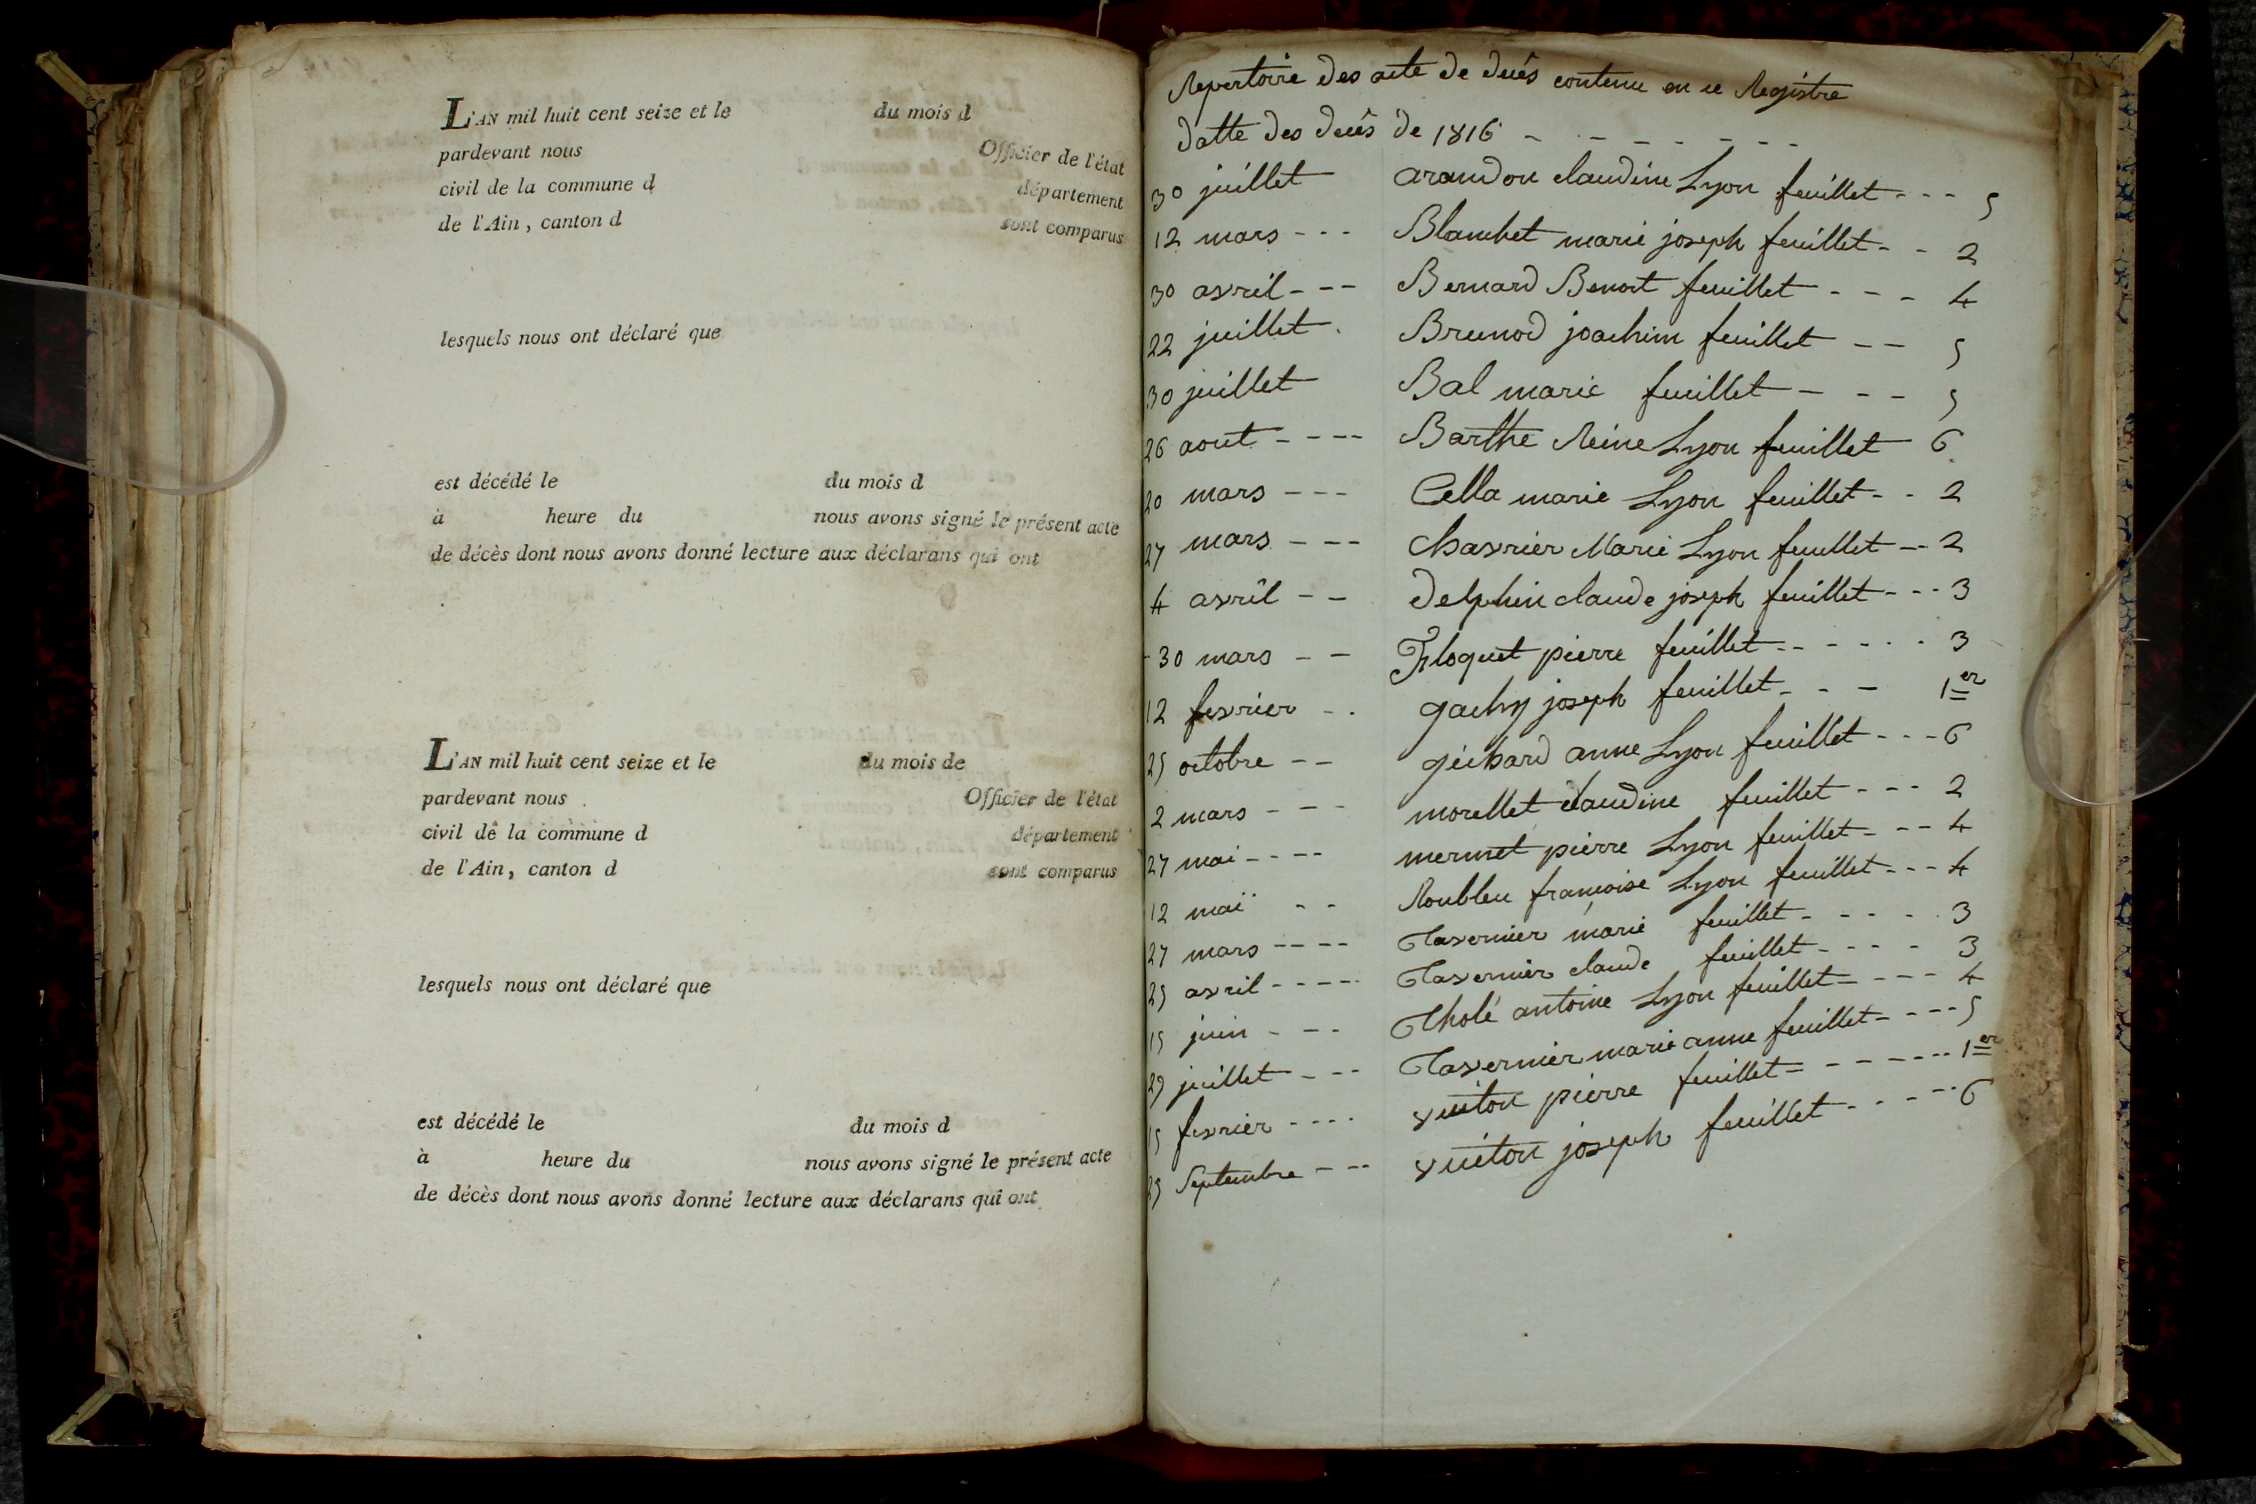 L'AN mil huit cent seize et le du mois d
pardevant nous Officier de l'état
civil de la commune d département
de l'Ain, canton d sont comparus
lesquels nous ont déclaré que
est décédé le du mois d
à heure du nous avons signé le présent acte
de décès dont nous avons donné lecture aux déclarans qui ont
L'AN mil huit cent seize et le du mois de
pardevant nous Officier de l'état
civil de la commune d département
de l'Ain, canton d sont comparus
lesquels nous ont déclaré que
est décédé le du mois d
à heure du nous avons signé le présent acte
de décès dont nous avons donné lecture aux déclarans qui ont
Repertoire des acte de decés contenu en ce Registre
datte des decés de 1816 - - - - - - -
30 juillet arandon claudine Lyon feuillet - - - 5
12 mars - - - Blanchet marie joseph feuillet - - 2
30 avril - - - Bernard Benoit feuillet - - - 4
22 juillet . Brunod joachim feuillet - - 5
30 juillet Bal marie feuillet - - - 5
26 aout - - - - Barthe Reine Lyon feuillet 6
20 mars - - - Cella marie Lyon feuillet - - 2
27 mars - - - Chavrier Marie Lyon feuillet - - 2
4 avril - - delphin claude joseph feuillet - - - 3
30 mars - - Floquet pierre feuillet - - - - - - 3
12 fevrier - . gachy joseph feuillet - - - 1er
25 octobre - - guichard anne Lyon feuillet - - - 6
2 mars - - - morellet claudine feuillet - - - 2
27 mai - - - - mermet pierre Lyon feuillet - - - 4
12 mai - - Roubleu francoise Lyon feuillet - - - 4
27 mars - - - - Tavernier marie feuillet - - - - - 3
25 avril - - - - - Tavernier claude feuillet - - - - 3
15 juin - - - Tholé antoine Lyon feuillet - - - - 4
29 juillet - - - Tavernier marie anne feuillet - - - - 5
15 fevrier - - - - vuiton pierre feuillet - - - - - - 1er
25 Septembre - - - vuiton joseph feuillet - - - - - - 6